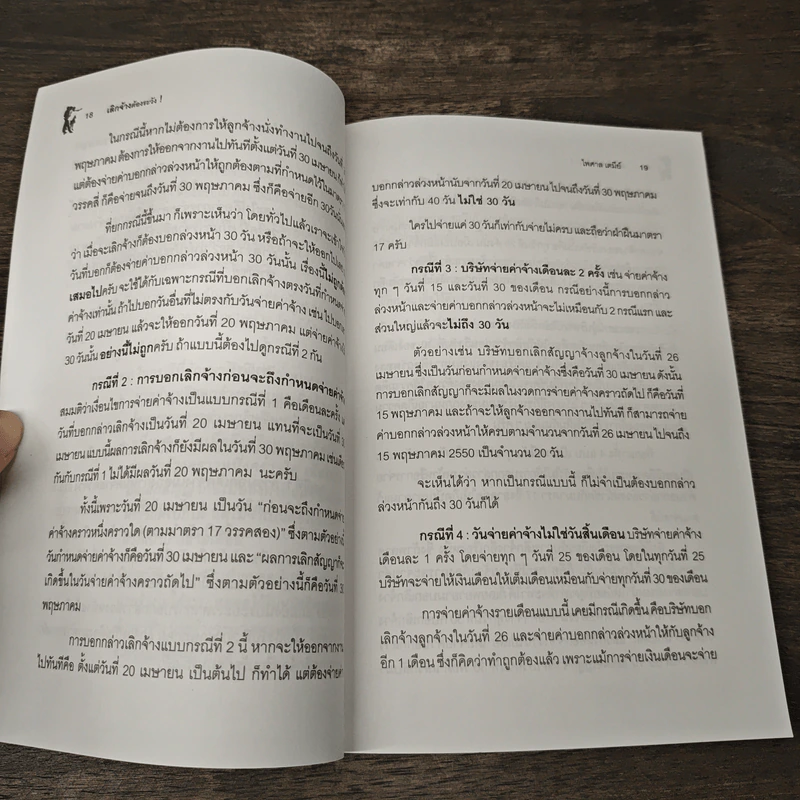 18 เลิกจ้างต้องระวัง !
ในกรณีนี้หากไม่ต้องการให้ลูกจ้างนั่งทำงานไปจนถึงวันที่
พฤษภาคม ต้องการให้ออกจากงานไปทันทีตั้งแต่วันที่ 30 เมษายน
แต่ต้องจ่ายค่าบอกกล่าวล่วงหน้าให้ถูกต้องตามที่กำหนดไว้ใน
วรรคสี่ ก็คือจ่ายจนถึงวันที่ 30 พฤษภาคม ซึ่งก็คือจ่ายอีก 30 วัน
ที่ยกกรณีนี้ขึ้นมา ก็เพราะเห็นว่า โดยทั่วไปแล้วเราจะเข้าใจ
ว่า เมื่อจะเลิกจ้างก็ต้องบอกล่วงหน้า 30 วัน หรือถ้าจะให้ออกไป
วันที่บอกก็ต้องจ่ายค่าบอกกล่าวล่วงหน้า 30 วันนั้น เรื่องนี้ไม่ถูก
เสมอไปครับ จะใช้ได้กับเฉพาะกรณีที่บอกเลิกจ้างตรงวันที่กำหนด
ค่าจ้างเท่านั้น ถ้าไปบอกวันอื่นที่ไม่ตรงกับวันจ่ายค่าจ้าง เช่น ไปบอก
วันที่ 20 เมษายน แล้วจะให้ออกวันที่ 20 พฤษภาคม แต่จ่ายค่าจ้าง
30 วันนั้น อย่างนี้ไม่ถูกครับ ถ้าแบบนี้ต้องไปดูกรณีที่ 2 กัน
กรณีที่ 2 : การบอกเลิกจ้างก่อนจะถึงกำหนดจ่ายค่าจ้าง
สมมติว่าเงื่อนไขการจ่ายค่าจ้างเป็นแบบกรณีที่ 1 คือเดือนละครั้ง
วันที่บอกกล่าวเลิกจ้างเป็นวันที่ 20 เมษายน แทนที่จะเป็นวันที่
เมษายน แบบนี้ผลการเลิกจ้างก็ยังมีผลในวันที่ 30 พฤษภาคม เช่น
กันกับกรณีที่ 1 ไม่ได้มีผลวันที่ 20 พฤษภาคม นะครับ
ทั้งนี้เพราะวันที่ 20 เมษายน เป็นวัน “ก่อนจะถึงกำหนดจ่าย
ค่าจ้างคราวหนึ่งคราวใด (ตามมาตรา 17 วรรคสอง)” ซึ่งตามตัวอย่าง
วันกำหนดจ่ายค่าจ้างก็คือวันที่ 30 เมษายน และ “ผลการเลิกสัญญาก็จะ
เกิดขึ้นในวันจ่ายค่าจ้างคราวถัดไป” ซึ่งตามตัวอย่างนี้ก็คือวันที่ 30
พฤษภาคม
การบอกกล่าวเลิกจ้างแบบกรณีที่ 2 นี้ หากจะให้ออกจากงาน
ไปทันทีคือ ตั้งแต่วันที่ 20 เมษายน เป็นต้นไป ก็ทำได้ แต่ต้องจ่าย
ไพศาล เตมีย์ 19
บอกกล่าวล่วงหน้านับจากวันที่ 20 เมษายน ไปจนถึงวันที่ 30 พฤษภาคม
ซึ่งจะเท่ากับ 40 วัน ไม่ใช่ 30 วัน
ใครไปจ่ายแค่ 30 วันก็เท่ากับจ่ายไม่ครบ และถือว่าฝ่าฝืนมาตรา
17 ครับ
กรณีที่ 3 : บริษัทจ่ายค่าจ้างเดือนละ 2 ครั้ง เช่น จ่ายค่าจ้าง
ทุก ๆ วันที่ 15 และวันที่ 30 ของเดือน กรณีอย่างนี้การบอกกล่าว
ล่วงหน้าและจ่ายค่าบอกกล่าวล่วงหน้าจะไม่เหมือนกับ 2 กรณีแรก และ
ส่วนใหญ่แล้วจะไม่ถึง 30 วัน
ตัวอย่างเช่น บริษัทบอกเลิกสัญญาจ้างลูกจ้างในวันที่ 26
เมษายน ซึ่งเป็นวันก่อนกำหนดจ่ายค่าจ้างซึ่งคือวันที่ 30 เมษายน ดังนั้น
การบอกเลิกสัญญาก็จะมีผลในงวดการจ่ายค่าจ้างถัดไป ก็คือวันที่
15 พฤษภาคม และถ้าจะให้ลูกจ้างออกจากงานไปทันที ก็สามารถจ่าย
ค่าบอกกล่าวล่วงหน้าให้ครบตามจำนวนจากวันที่ 26 เมษายน ไปจนถึง
15 พฤษภาคม 2550 เป็นจำนวน 20 วัน
จะเห็นได้ว่า หากเป็นกรณีแบบนี้ ก็ไม่จำเป็นต้องบอกกล่าว
ล่วงหน้ากันถึง 30 วันก็ได้
กรณีที่ 4 : วันจ่ายค่าจ้างไม่ใช่วันสิ้นเดือน บริษัทจ่ายค่าจ้าง
เดือนละ 1 ครั้ง โดยจ่ายทุก ๆ วันที่ 25 ของเดือน โดยในทุกวันที่ 25
บริษัทจะจ่ายให้เงินเดือนให้เต็มเดือนเหมือนกับจ่ายทุกวันที่ 30 ของเดือน
การจ่ายค่าจ้างรายเดือนแบบนี้ เคยมีกรณีเกิดขึ้น คือบริษัทบอก
เลิกจ้างลูกจ้างในวันที่ 26 และจ่ายค่าบอกกล่าวล่วงหน้าให้กับลูกจ้าง
อีก 1 เดือน ซึ่งก็คิดว่าทำถูกต้องแล้ว เพราะแม้การจ่ายเงินเดือนจะจ่าย